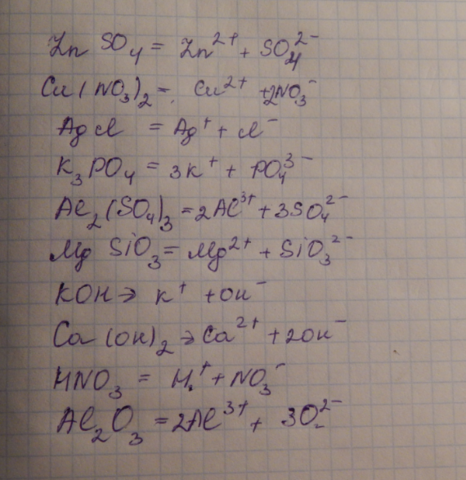 Zn SO₄ = Zn²⁺ + SO₄²⁻
Cu(NO₃)₂ = Cu²⁺ + 2NO₃⁻
AgCl = Ag⁺ + Cl⁻
K₃PO₄ = 3K⁺ + PO₄³⁻
Al₂(SO₄)₃ = 2Al³⁺ + 3SO₄²⁻
Mg SiO₃ = Mg²⁺ + SiO₃²⁻
KOH → K⁺ + OH⁻
Ca(OH)₂ → Ca²⁺ + 2OH⁻
HNO₃ = H⁺ + NO₃⁻
Al₂O₃ = 2Al³⁺ + 3O²⁻